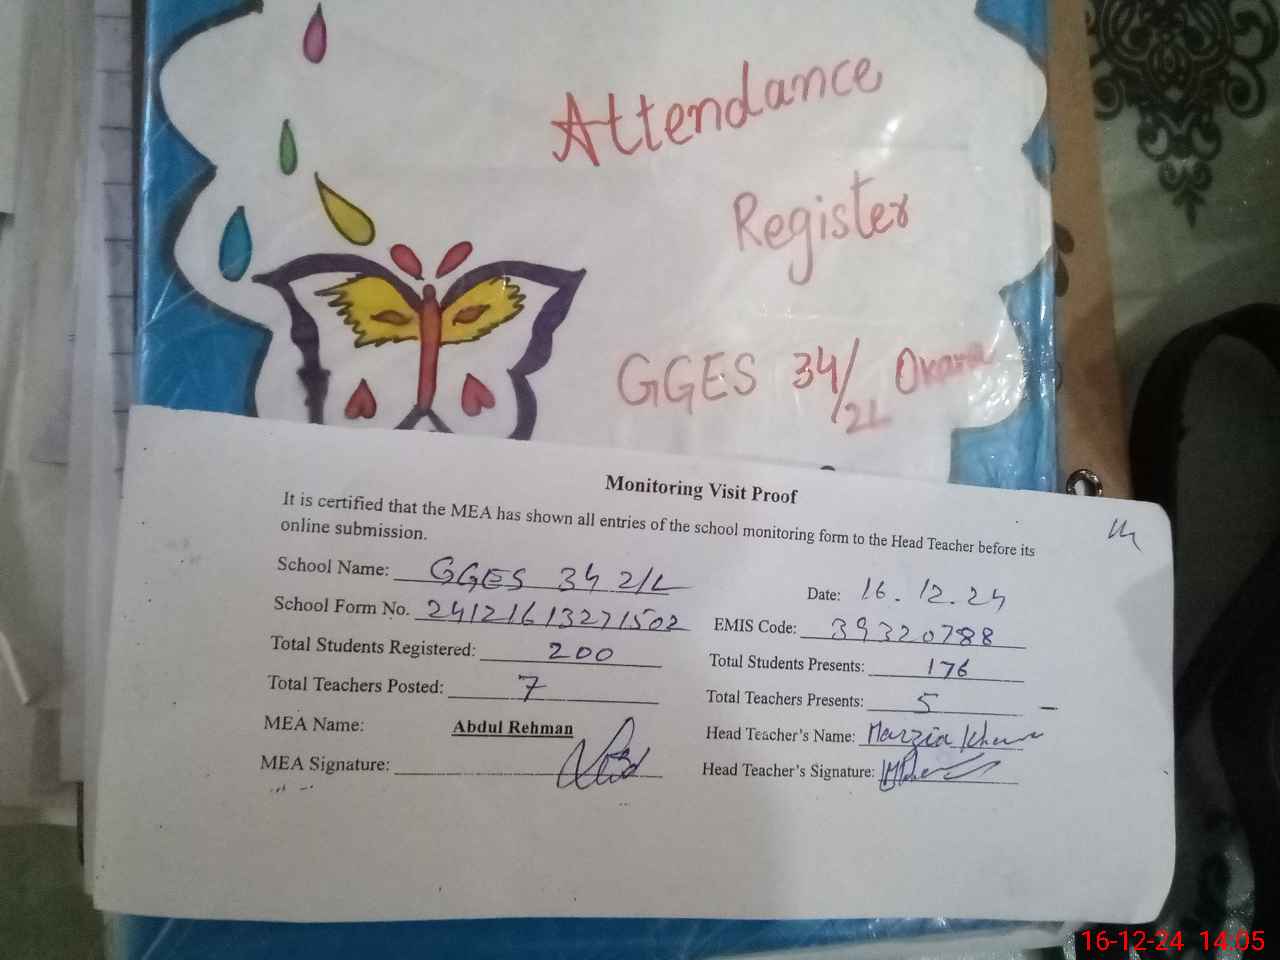 Attendance
Register
GGES 34/2L Okara
Monitoring Visit Proof
It is certified that the MEA has shown all entries of the school monitoring form to the Head Teacher before its
online submission.
School Name: GGES 34 2/L
Date: 16.12.24
School Form No. 24121613271502
EMIS Code: 39320788
Total Students Registered: 200
Total Students Presents: 176
Total Teachers Posted: 7
Total Teachers Presents: 5
MEA Name: Abdul Rehman
Head Teacher's Name: Marzia
MEA Signature:
Head Teacher's Signature:
16-12-24 14:05